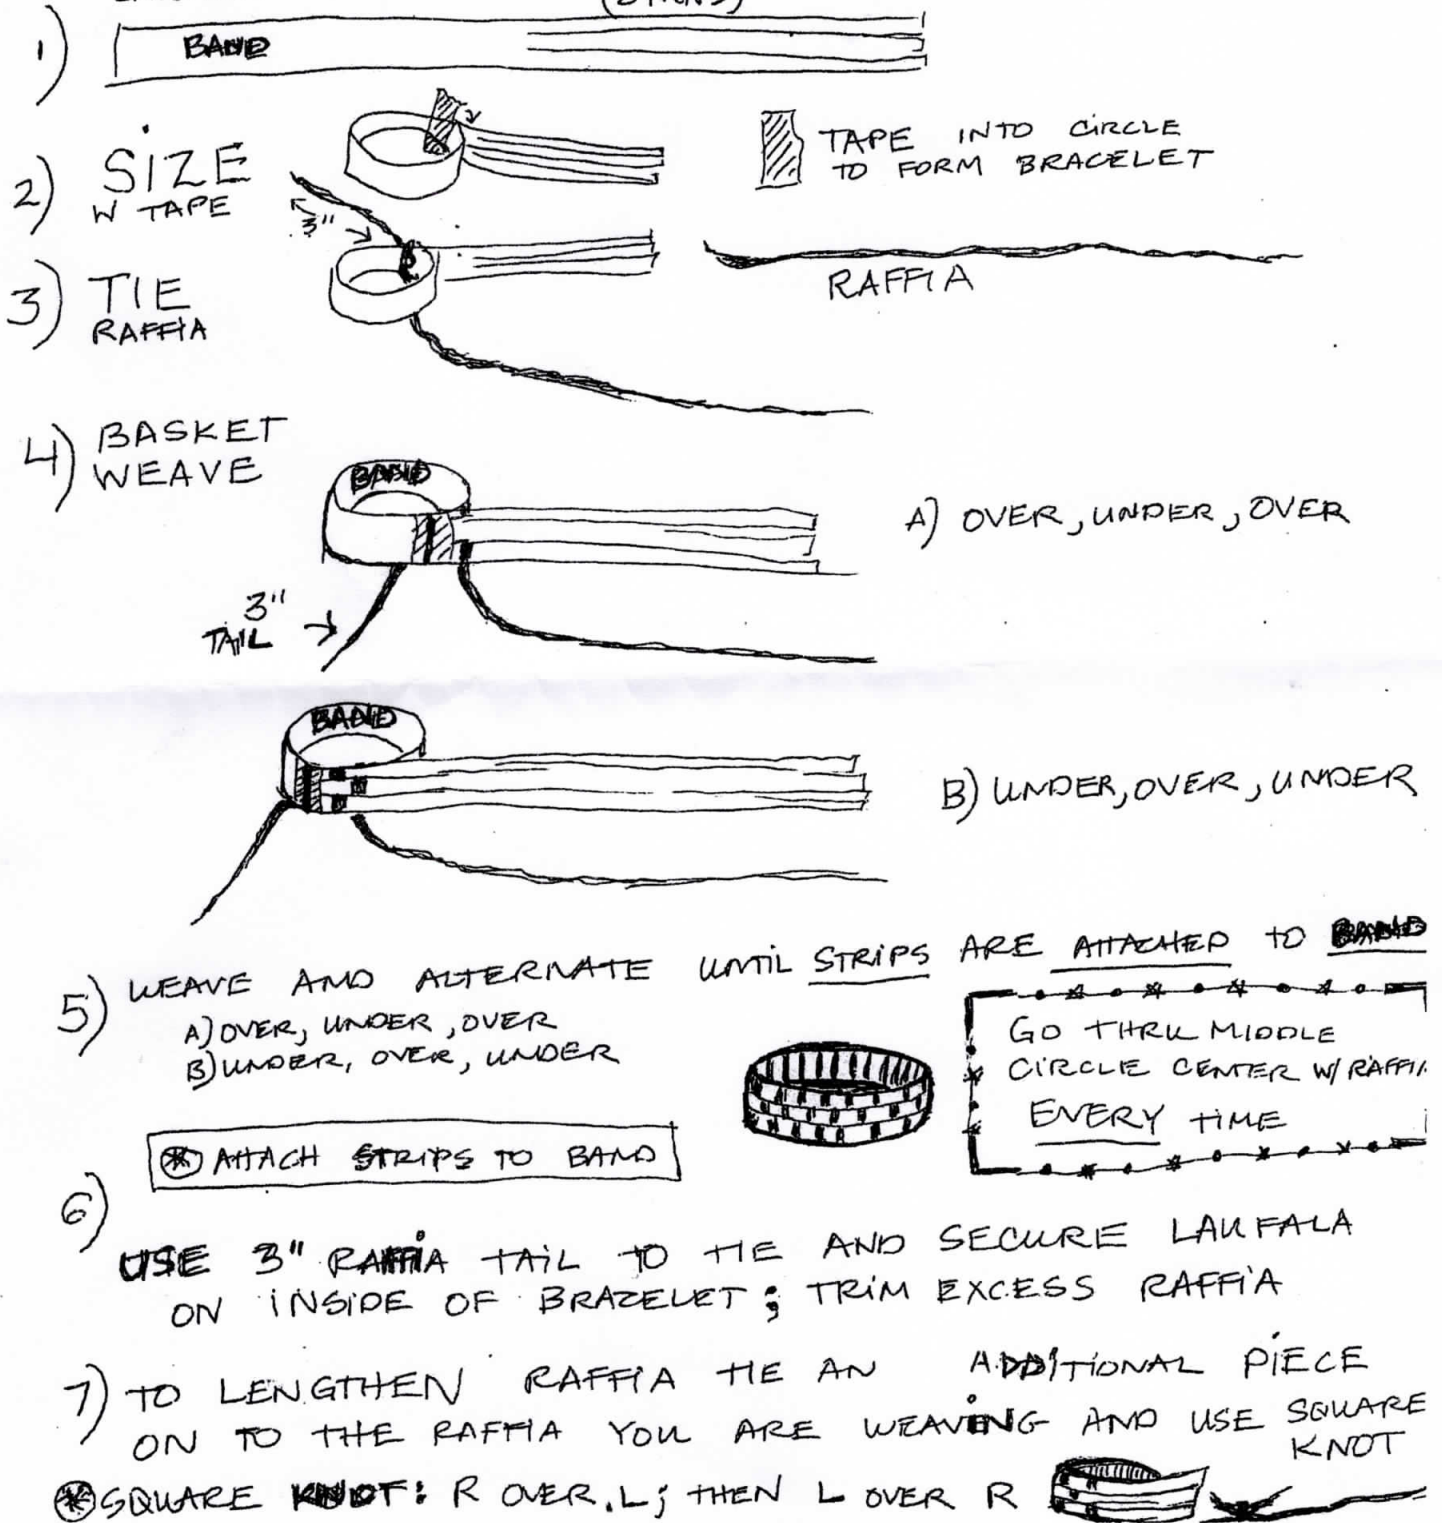 1) BAND
2) SIZE
W TAPE
TAPE INTO CIRCLE
TO FORM BRACELET
3"
3) TIE
RAFFIA
RAFFIA
4) BASKET
WEAVE
BAND
A) OVER, UNDER, OVER
3"
TAIL
BAND
B) UNDER, OVER, UNDER
5) WEAVE AND ALTERNATE UNTIL STRIPS ARE ATTACHED TO BAND
A) OVER, UNDER, OVER
B) UNDER, OVER, UNDER
GO THRU MIDDLE
CIRCLE CENTER W/ RAFFIA
EVERY TIME
* ATTACH STRIPS TO BAND
6)
USE 3" RAFFIA TAIL TO TIE AND SECURE LAUFALA
ON INSIDE OF BRACELET; TRIM EXCESS RAFFIA
7) TO LENGTHEN RAFFIA TIE AN ADDITIONAL PIECE
ON TO THE RAFFIA YOU ARE WEAVING AND USE SQUARE
KNOT
* SQUARE KNOT: R OVER L; THEN L OVER R